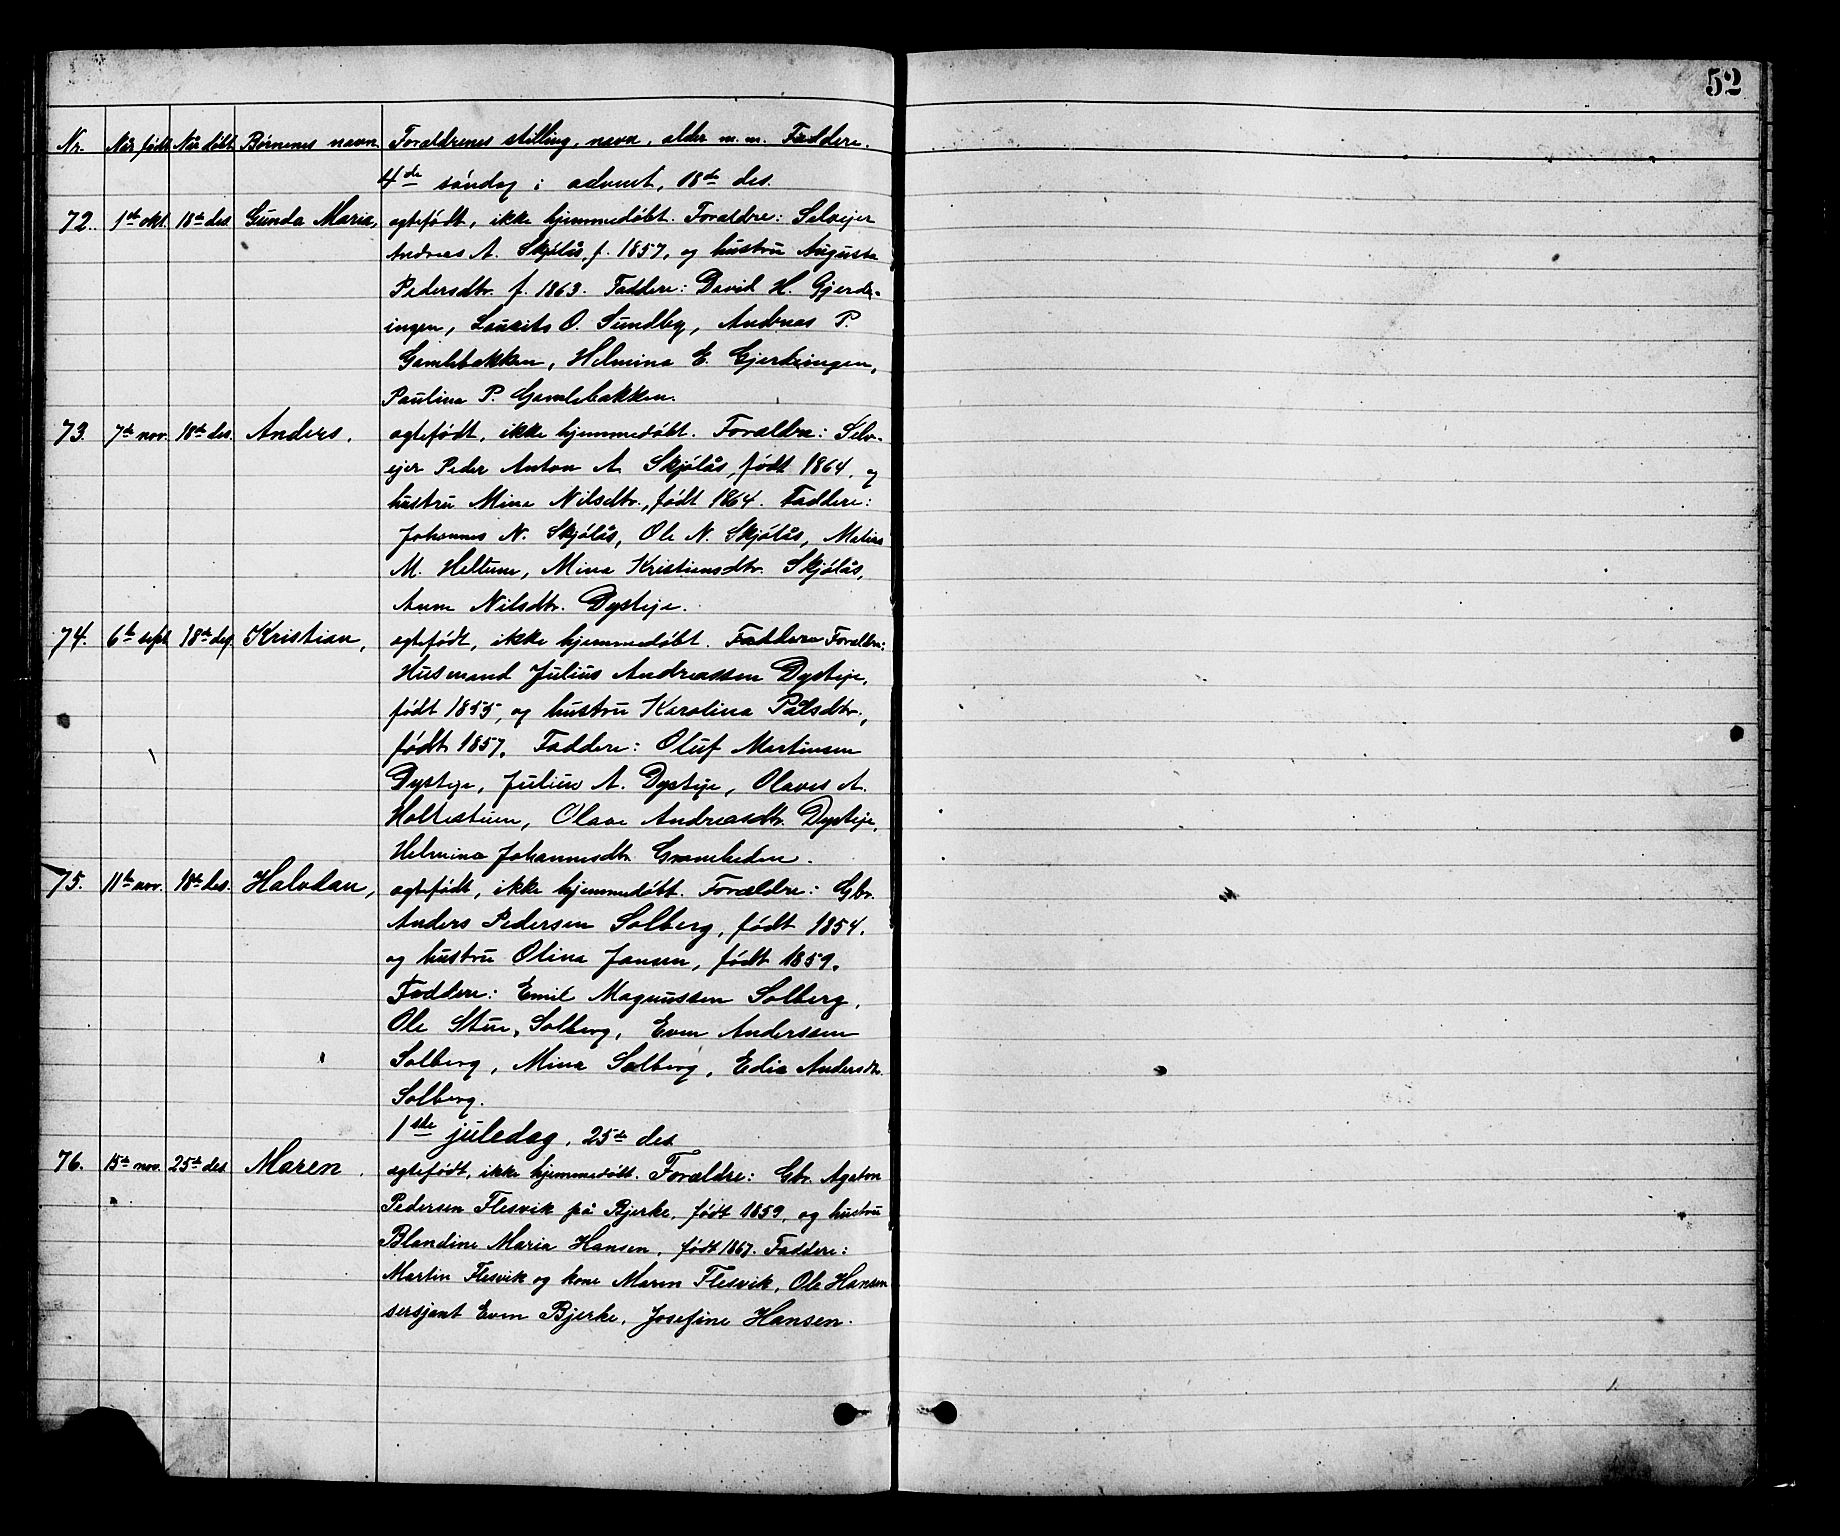 52
Nr. Når født Når døbt Børnenes navn. Forældrenes stilling, navn, alder m. m. Faddere.
4de søndag i advent, 18de des.
72. 1ste okt. 18de des Gunda Maria, ægtefødt, ikke hjemmedøbt. Forældre: Selvejer
Andreas A. Skjølås, f. 1857, og hustru Augusta
Pedersdtr. f. 1863. Faddere: David H. Gjerdr-
ingen, Laurits O. Sundby, Andreas P.
Gamlebakken, Helmina E. Gjerdringen,
Paulina P. Gamlebakken.
73. 7de nov. 18de des. Anders, ægtefødt, ikke hjemmedøbt. Forældre: Selv-
ejer Peder Anton A. Skjølås, født 1864, og
hustru Mina Nilsdtr., født 1864. Faddere:
Johannes N. Skjølås, Ole N. Skjølås,
M. Heltune, Mina Kristiansdtr. Skjølås,
Anne Nilsdtr. Dysteje.
74. 6te sept. 18de des. Kristian, ægtefødt, ikke hjemmedøbt. Faddere Forældre:
Husmand Julius Andreassen Dysteje,
født 1855, og hustru Karolina Pålsdtr.,
født 1857. Faddere: Oluf Martinsen
Dysteje, Julius A. Dysteje, Olaves A.
Holtestuen, Olave Andreasdtr. Dysteje,
Helmina Johannesdtr. Granheden.
75. 11te nov. 18de des. Halvdan, ægtefødt, ikke hjemmedøbt. Forældre: Gbr.
Anders Pedersen Solberg, født 1854.
og hustru Olina Jansen, født 1859.
Faddere: Emil Magnussen Solberg,
Ole Stue, Solberg, Even Anderssen
Solberg, Mina Solberg, Edia Andersdtr.
Solberg.
1ste juledag, 25de des
76. 15de nov. 25de des Maren. ægtefødt, ikke hjemmedøbt. Forældre: Gbr. Agaton
Pedersen Flesvik på Bjerke, født 1859, og hustru
Blandine Maria Hansen, født 1867. Faddere:
Martin Flesvik og kone Maren Flesvik, Ole Hansen
sersjant Even Bjerke, Josefine Hansen.